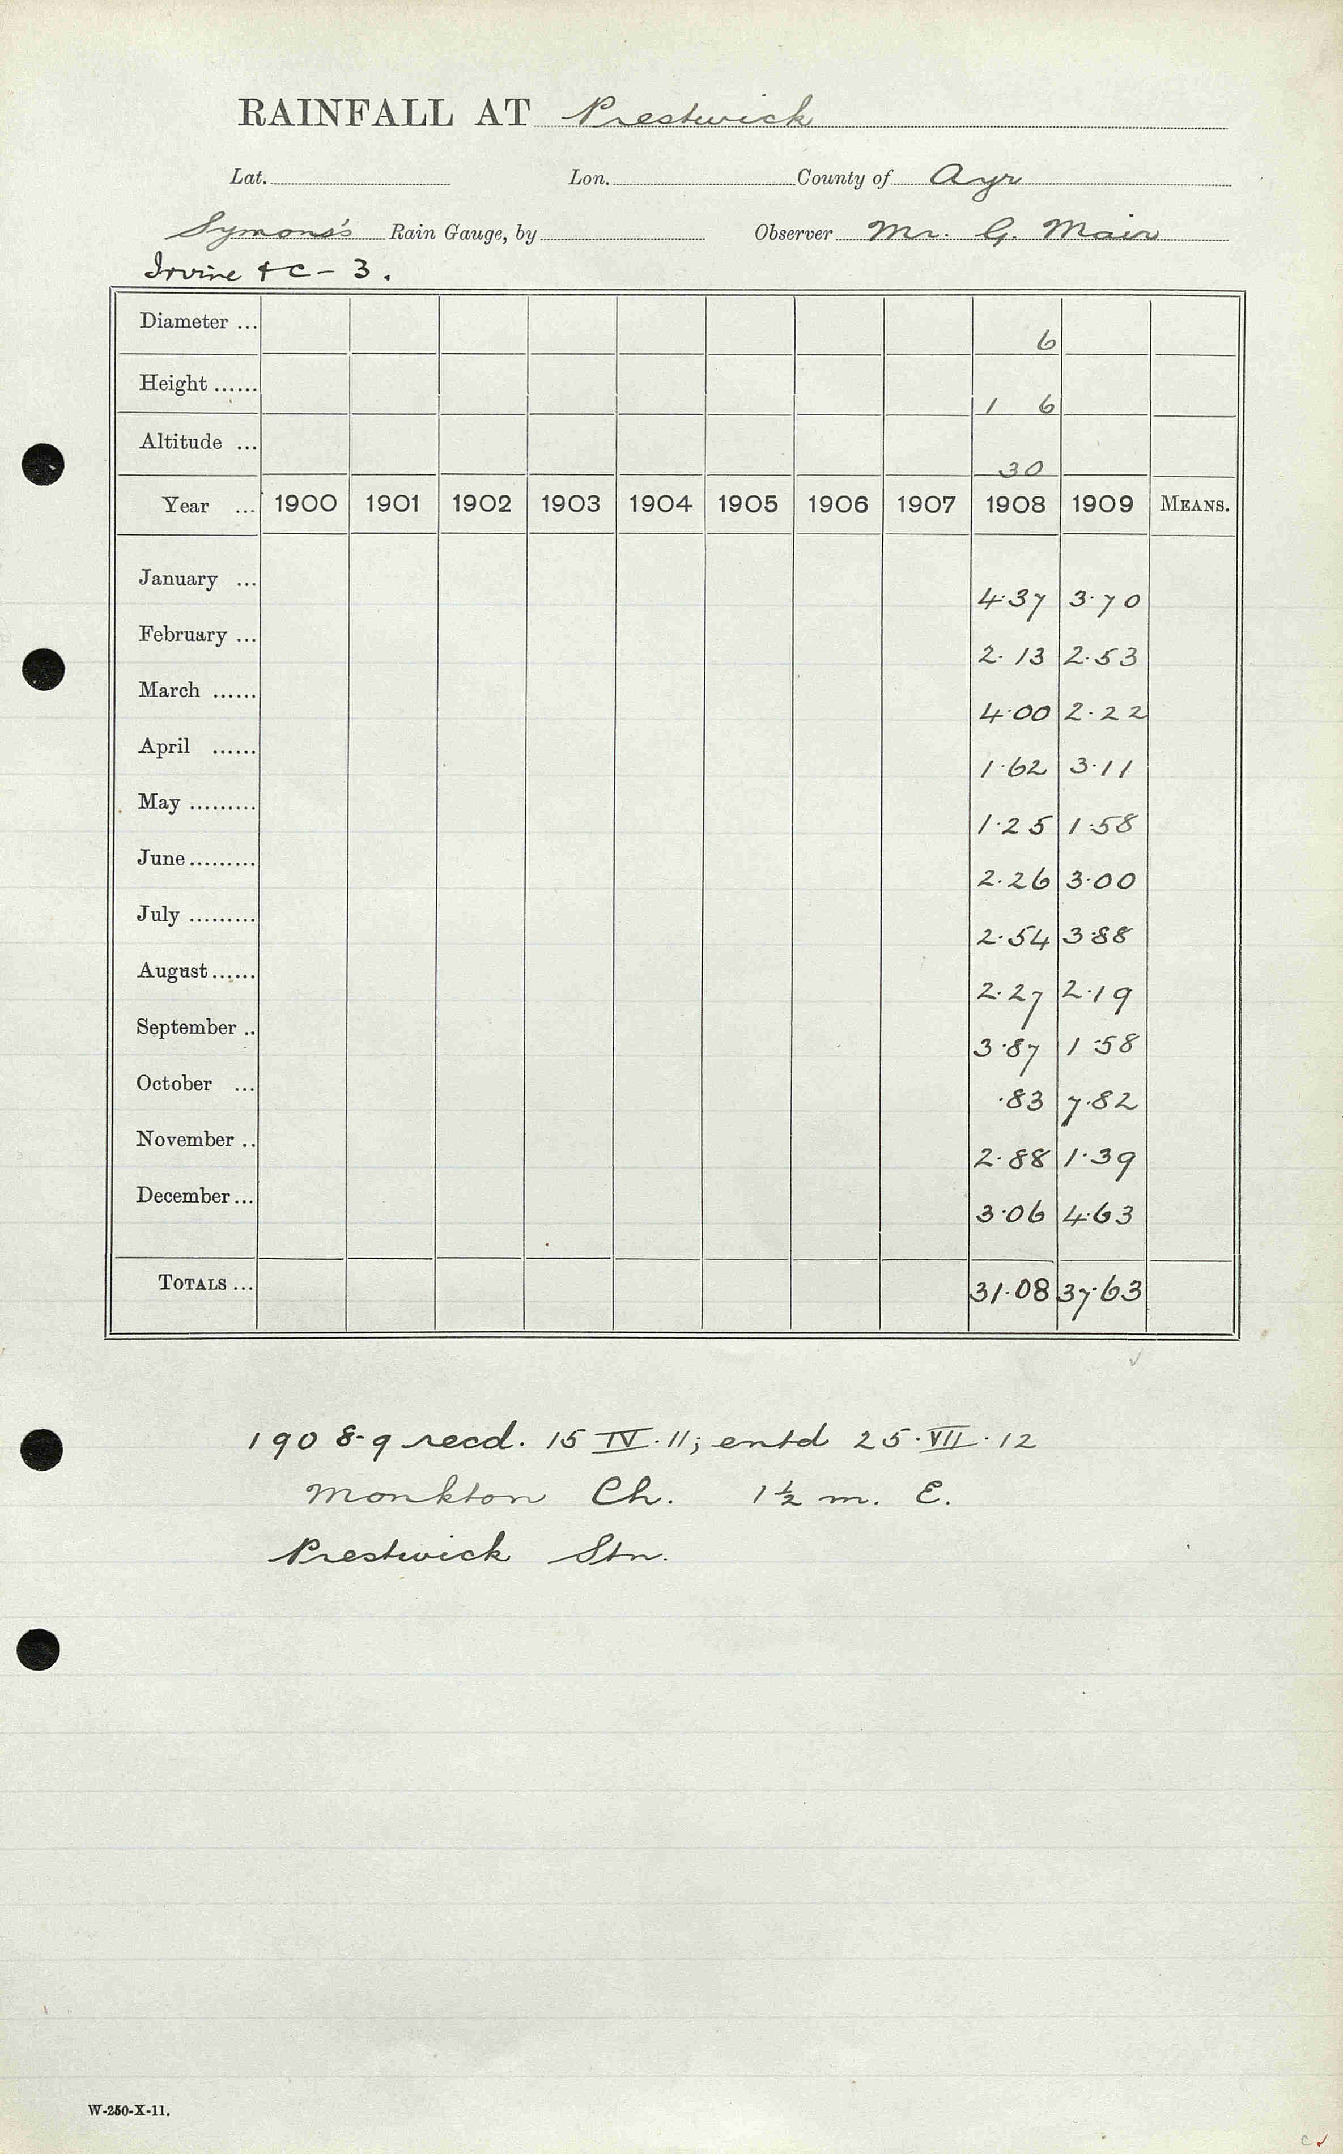 RAINFALL AT Prestwick
Lat. Lon. County of Ayr
Symons's Rain Gauge, by Observer Mr. G. Mair
Irvine &c - 3.
Diameter ... 6
Height ...... 1 6
Altitude ... 30
Year ... 1900 1901 1902 1903 1904 1905 1906 1907 1908 1909 MEANS.
January ... 4·37 3·70
February ... 2·13 2·53
March ...... 4·00 2·22
April ...... 1·62 3·11
May ......... 1·25 1·58
June ......... 2·26 3·00
July ......... 2·54 3·88
August ...... 2·27 2·19
September .. 3·87 1·58
October ... ·83 7·82
November .. 2·88 1·39
December ... 3·06 4·63
TOTALS ... 31·08 37·63
1908-9 recd. 15 IV·11; entd 25·VII·12
Monkton Ch. 1½ m. E.
Prestwick Stn.
W-250-X-11.